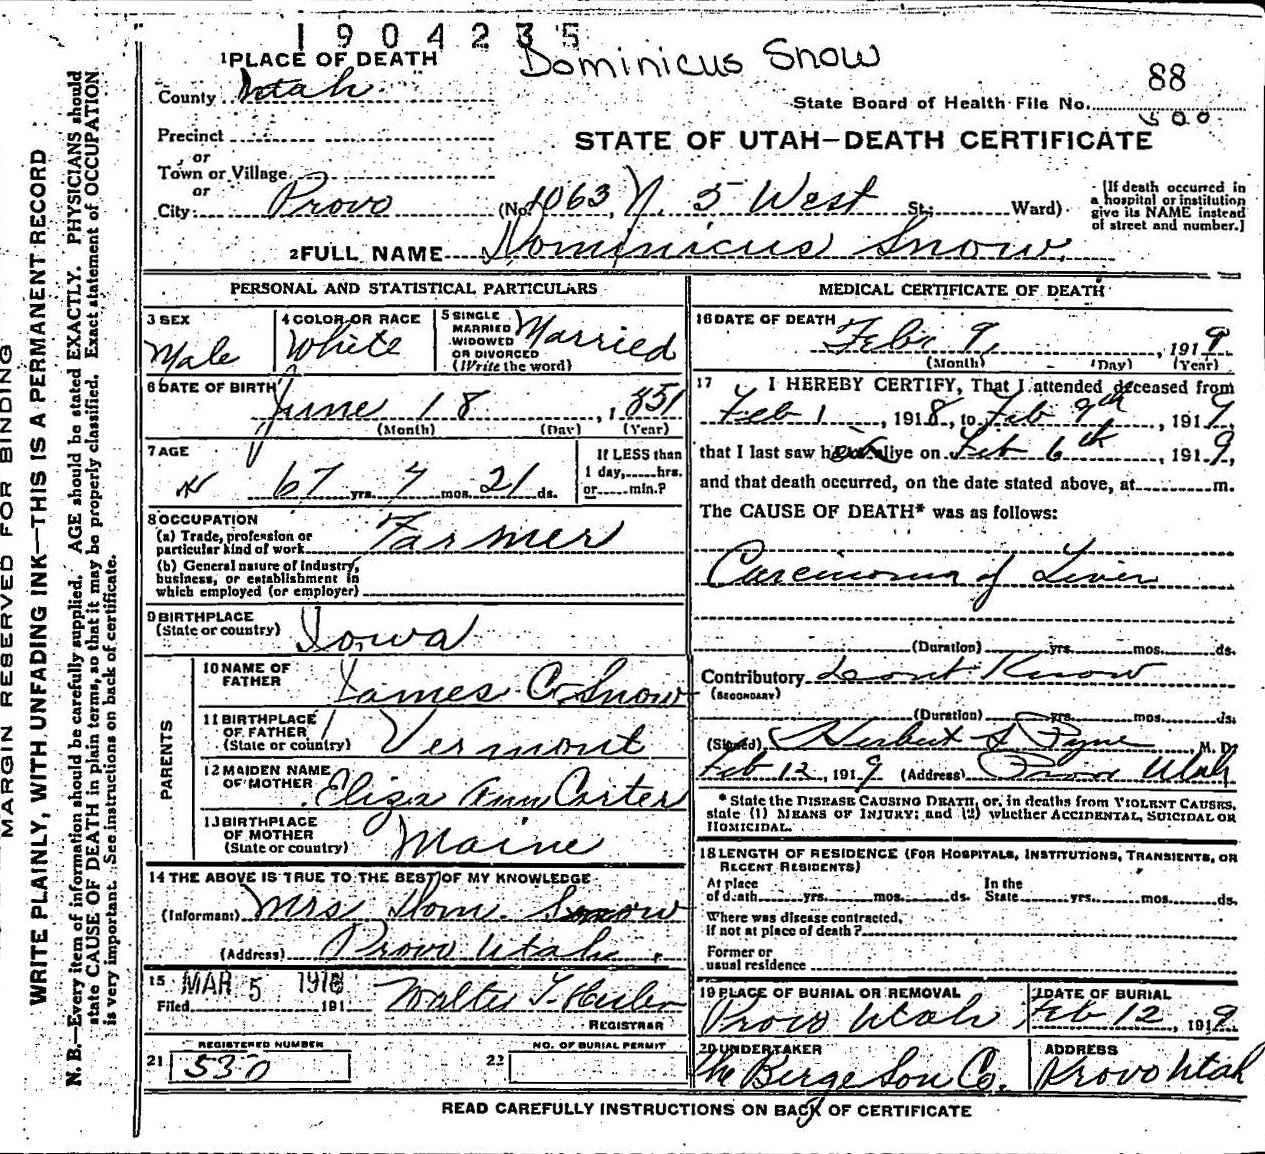 1904235
Dominicus Snow
88
State Board of Health File No.
500
STATE OF UTAH—DEATH CERTIFICATE
1 PLACE OF DEATH
County Utah
Precinct
or
Town or Village
or
City: Provo (No. 1063 N. 5 West St.; Ward)
[If death occurred in
a hospital or institution
give its NAME instead
of street and number.]
2 FULL NAME Dominicus Snow
PERSONAL AND STATISTICAL PARTICULARS
3 SEX
Male
4 COLOR OR RACE
White
5 SINGLE
MARRIED
WIDOWED
OR DIVORCED
(Write the word)
Married
6 DATE OF BIRTH
June 18, 1851
(Month) (Day) (Year)
7 AGE
67 yrs. 7 mos. 21 ds.
If LESS than
1 day, hrs.
or min.?
8 OCCUPATION
(a) Trade, profession or
particular kind of work Farmer
(b) General nature of industry,
business, or establishment in
which employed (or employer)
9 BIRTHPLACE
(State or country) Iowa
PARENTS
10 NAME OF
FATHER James C. Snow
11 BIRTHPLACE
OF FATHER
(State or country) Vermont
12 MAIDEN NAME
OF MOTHER Eliza Ann Carter
13 BIRTHPLACE
OF MOTHER
(State or country) Maine
14 THE ABOVE IS TRUE TO THE BEST OF MY KNOWLEDGE
(Informant) Mrs Dom. Snow
(Address) Provo Utah.
15 MAR 5
Filed 191
Walter T. Hasler
REGISTRAR
REGISTERED NUMBER
21 530
NO. OF BURIAL PERMIT
22
MEDICAL CERTIFICATE OF DEATH
16 DATE OF DEATH
Feb. 9, 1919
(Month) (Day) (Year)
17 I HEREBY CERTIFY, That I attended deceased from
Feb 1, 1918, to Feb 9th, 1919,
that I last saw alive on Feb 6th, 1919,
and that death occurred, on the date stated above, at m.
The CAUSE OF DEATH* was as follows:
Carcinoma of Liver
(Duration) yrs. mos. ds.
Contributory dont Know
(SECONDARY)
(Duration) yrs. mos. ds.
(Signed) Herbert S Pyne M. D.
Feb 12, 1919 (Address) Provo Utah
* State the DISEASE CAUSING DEATH, or, in deaths from VIOLENT CAUSES,
state (1) MEANS OF INJURY; and (2) whether ACCIDENTAL, SUICIDAL OR
HOMICIDAL.
18 LENGTH OF RESIDENCE (FOR HOSPITALS, INSTITUTIONS, TRANSIENTS, OR
RECENT RESIDENTS)
At place In the
of death yrs. mos. ds. State yrs. mos. ds.
Where was disease contracted,
if not at place of death?
Former or
usual residence
19 PLACE OF BURIAL OR REMOVAL
Provo Utah
DATE OF BURIAL
Feb 12, 1919
20 UNDERTAKER
The Berg & Son Co.
ADDRESS
Provo Utah
READ CAREFULLY INSTRUCTIONS ON BACK OF CERTIFICATE
MARGIN RESERVED FOR BINDING
WRITE PLAINLY, WITH UNFADING INK—THIS IS A PERMANENT RECORD
N. B.—Every item of information should be carefully supplied. AGE should be stated EXACTLY. PHYSICIANS should
state CAUSE OF DEATH in plain terms, so that it may be properly classified. Exact statement of OCCUPATION
is very important. See instructions on back of certificate.